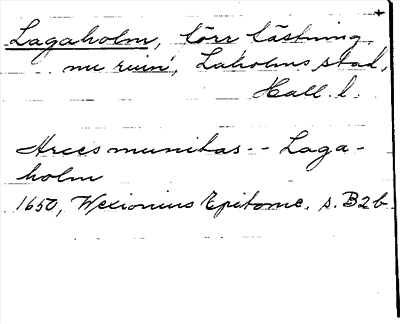 Lagaholm, förr fästning,
nu ruin, Laholms stad,
Hall. l.
Arces munitas -- Laga-
holm
1650, Wexionius Epitome, s. B2b.